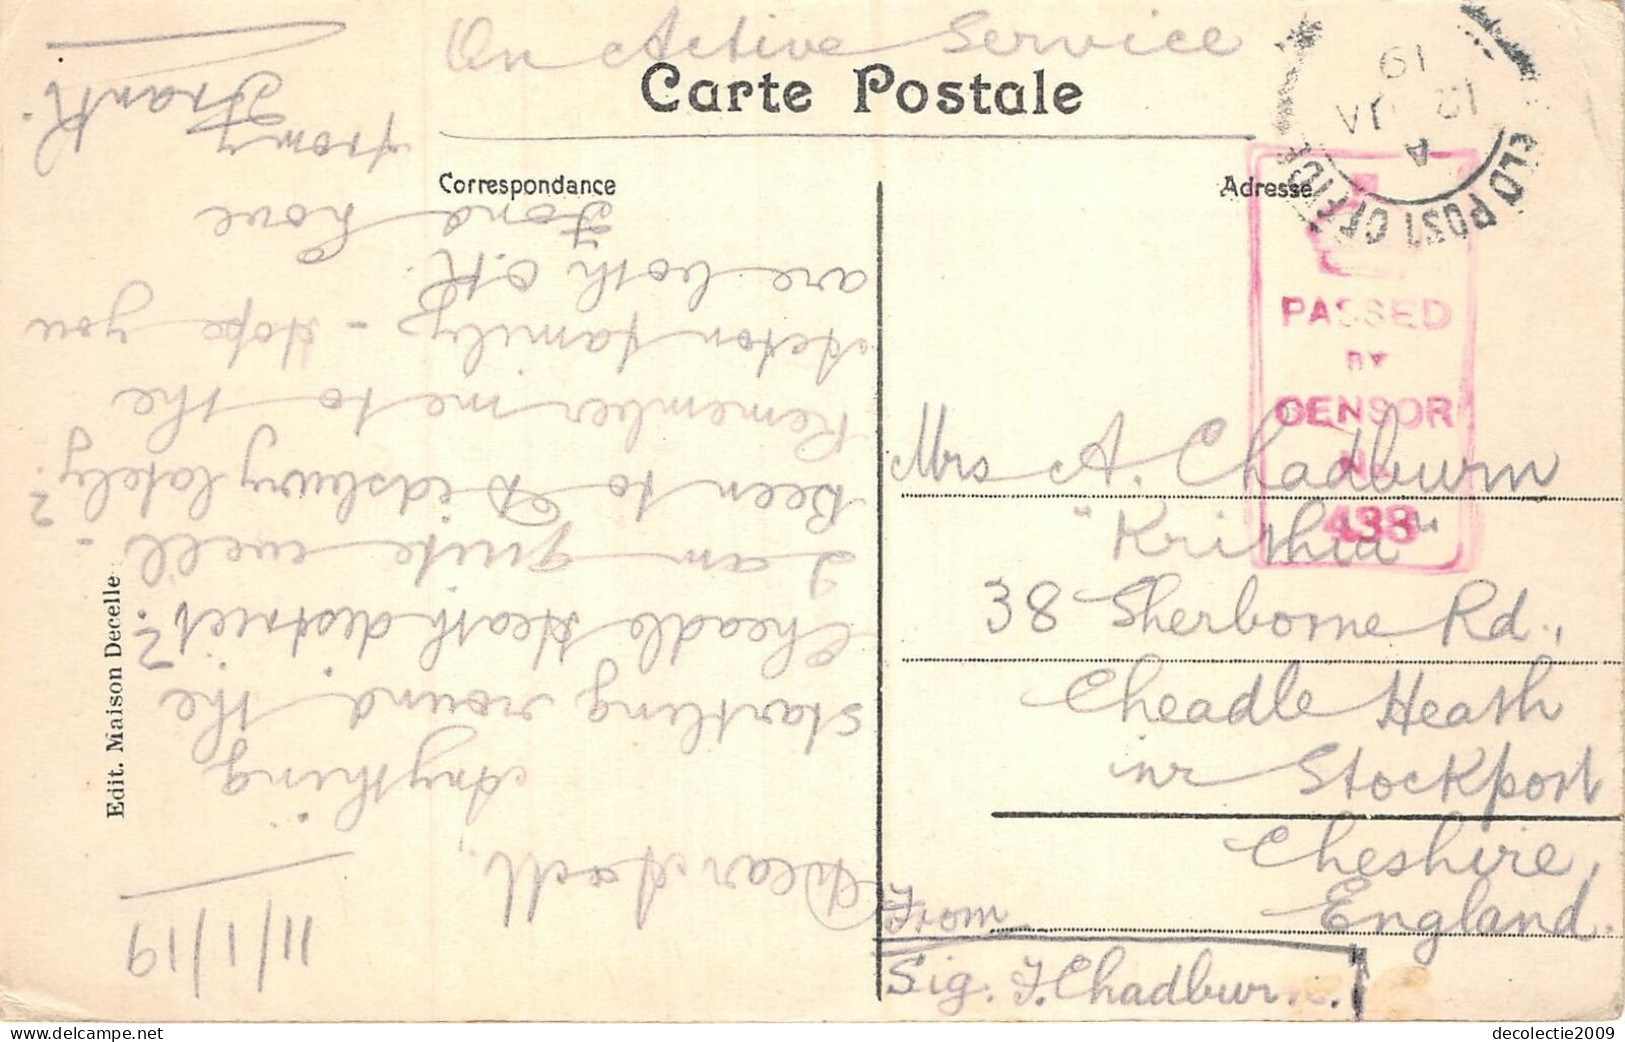 On Active Service
Carte Postale
Correspondance
Adresse
Edit. Maison Decelle
ELD POST OFFICE
A
12 JA
19
PASSED
BY
CENSOR
No
433
Mrs A. Chadburn
"Krithia"
38 Sherborne Rd.,
Cheadle Heath
nr Stockport
Cheshire,
England.
From
Sig. F. Chadburn.
11/1/19
Dear
Anything
startling round the
Cheadle Heath district?
I am quite well -
Been to Didsbury lately?
Remember me to the
family - Hope you
are both O.K.
Fond Love
from
Frank.
decolectie2009